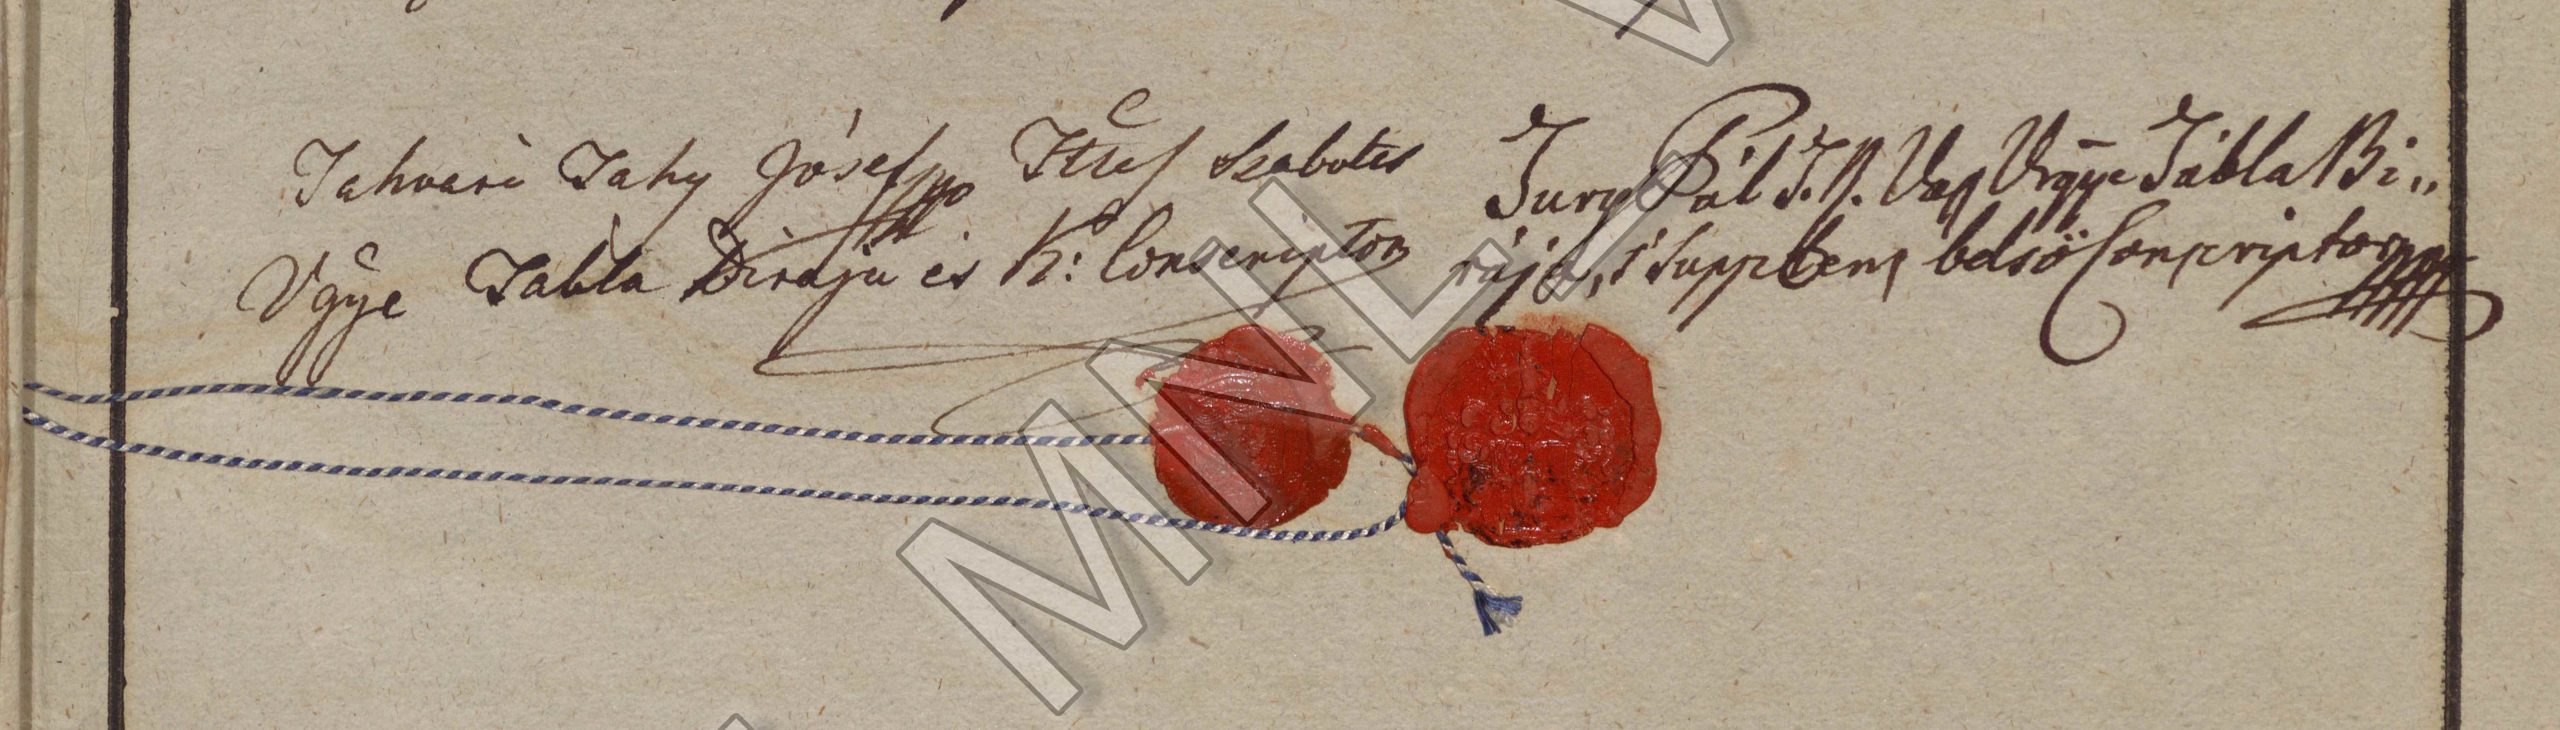 Tahvari Tahy Jósef Ttes Szabolcs
Vgye Tabla Biraja és K: Conscriptor
Jury Pál T. N. Vas Vrgye Tábla Bi„
rája, s' Supplens belsö Conscriptor
MNL